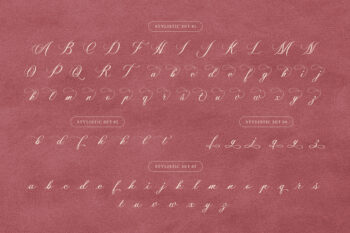 STYLISTIC SET 01
A B C D E F G H I J K L M N
O P Q R T a b c d e f g h i j
k l m n o p q r s t u v w x y z
STYLISTIC SET 02
STYLISTIC SET 04
b d f h k l t
f g j q y z
STYLISTIC SET 03
a b c d e f g h i j k l m n o p q r s
t u v w x y z